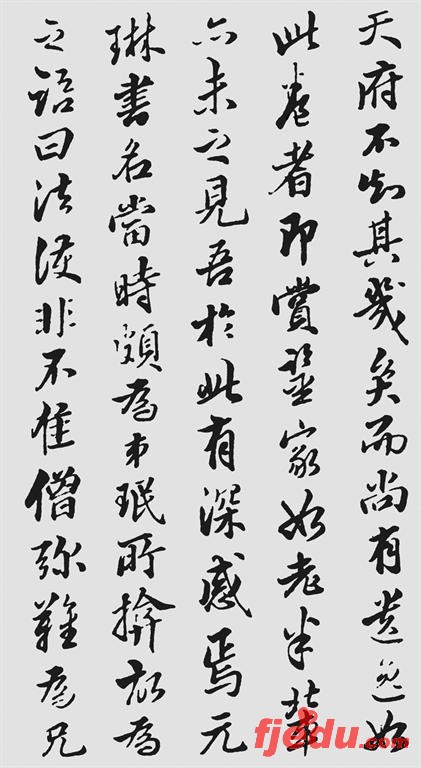 天府不知其幾矣而尚有遺逸如
此卷者即賞鑒家如老米輩
亦未之見吾於此有深感焉元
琳書名當時頗為弟珉所揜故為
之語曰法護非不佳僧弥難為兄
fjedu.com